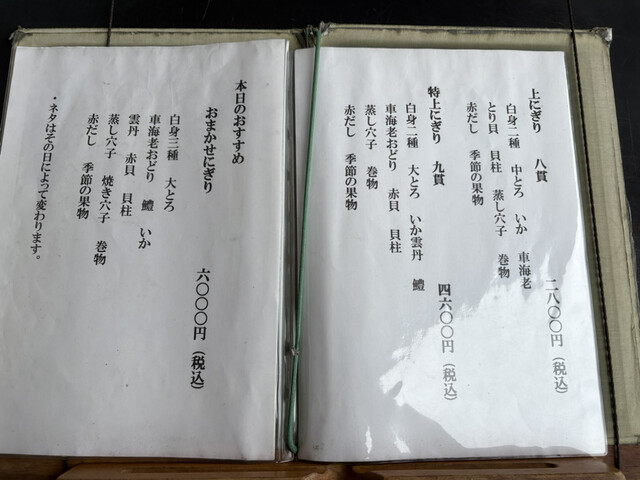 上にぎり 八貫 二八〇〇円(税込)
白身二種 中とろ いか 車海老
とり貝 貝柱 蒸し穴子 巻物
赤だし 季節の果物
特上にぎり 九貫 四六〇〇円(税込)
白身二種 大とろ いか雲丹 鱧
車海老おどり 赤貝 貝柱
蒸し穴子 巻物
赤だし 季節の果物
本日のおすすめ
おまかせにぎり 六〇〇〇円(税込)
白身三種 大とろ
車海老おどり 鱧 いか
雲丹 赤貝 貝柱
蒸し穴子 焼き穴子 巻物
赤だし 季節の果物
・ネタはその日によって変わります。